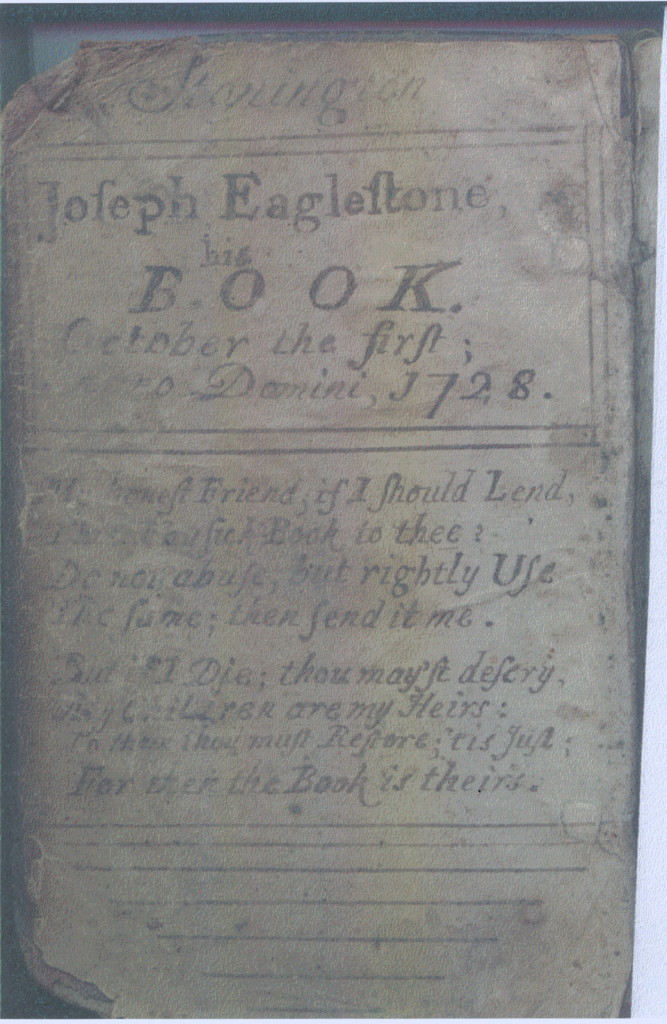 Stanington
Joſeph Eagleſtone,
his
BOOK.
October the firſt;
Anno Domini, 1728.
My honeſt Friend; if I ſhould Lend,
This Muſick Book to thee?
Do not abuſe, but rightly Uſe
The ſame; then ſend it me.
But if I Die; thou may'ſt deſcry,
My Children are my Heirs:
To them thou muſt Reſtore; 'tis Juſt;
For then the Book is theirs.